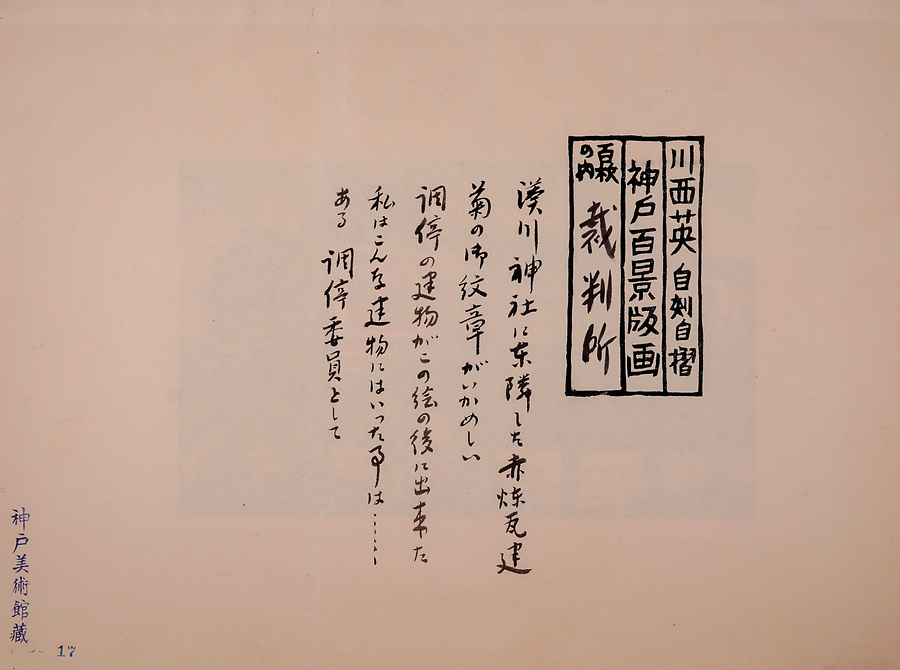 川西英 自刻自摺
神戸百景版画
百枚の内 裁判所
湊川神社に東隣した赤煉瓦建
菊の御紋章がいかめしい
調停の建物がこの絵の後に出来た
私はこんな建物にはいった事は……
ある 調停委員として
神戸美術館蔵
17